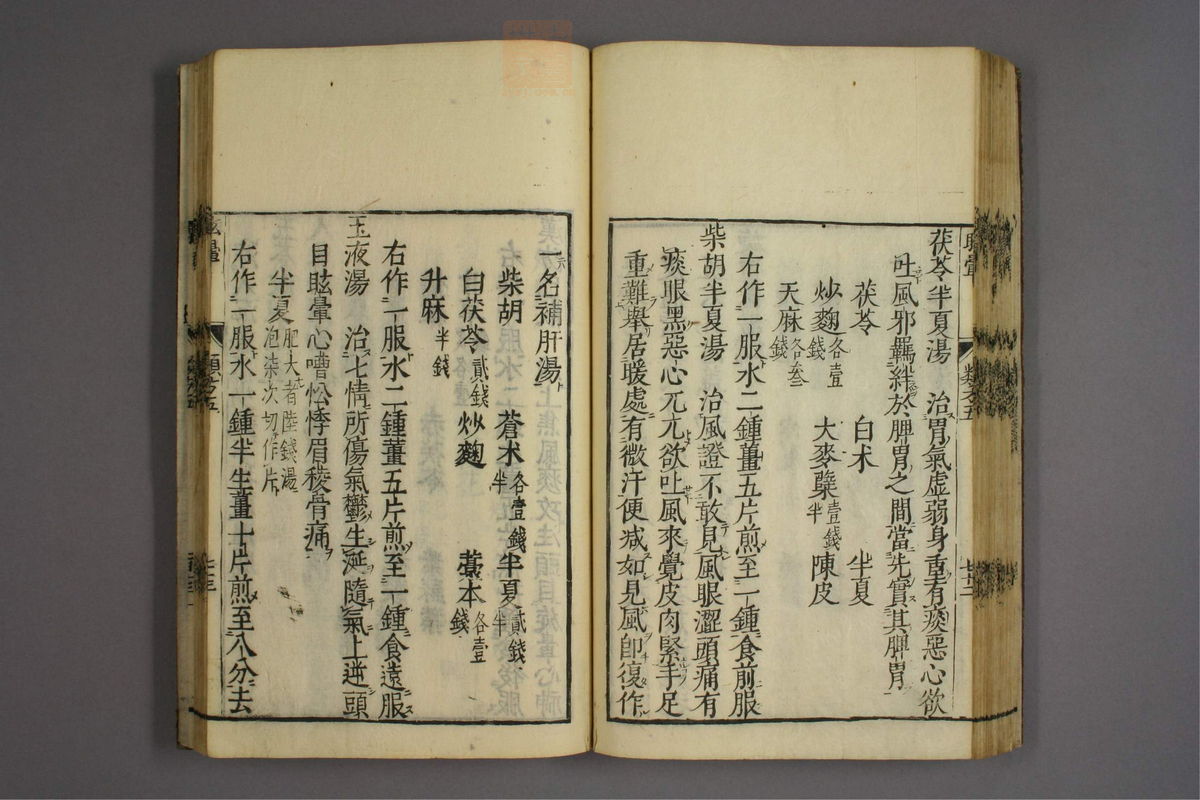 茯苓半夏湯　治胃氣虛弱身重有痰惡心欲
吐風邪羈絆於脾胃之間當先實其脾胃
茯苓　白朮　半夏
炒麯各壹錢　大麥蘗壹錢半　陳皮
天麻各叁錢
右作一服水二鍾薑五片煎至一鍾食前服
柴胡半夏湯　治風證不敢見風眼澀頭痛有
痰眼黑惡心兀兀欲吐風來覺皮肉緊手足
重難舉居暖處有微汗便減如見風卽復作
一名補肝湯
柴胡　蒼朮各壹錢半　半夏貳錢半
白茯苓貳錢　炒麯　藁本各壹錢
升麻半錢
右作一服水二鍾薑五片煎至一鍾食遠服
玉液湯　治七情所傷氣鬱生涎隨氣上逆頭
目眩暈心嘈忪悸眉稜骨痛
半夏肥大者陸錢湯泡柒次切作片
右作一服水一鍾半生薑十片煎至八分去
眩暈